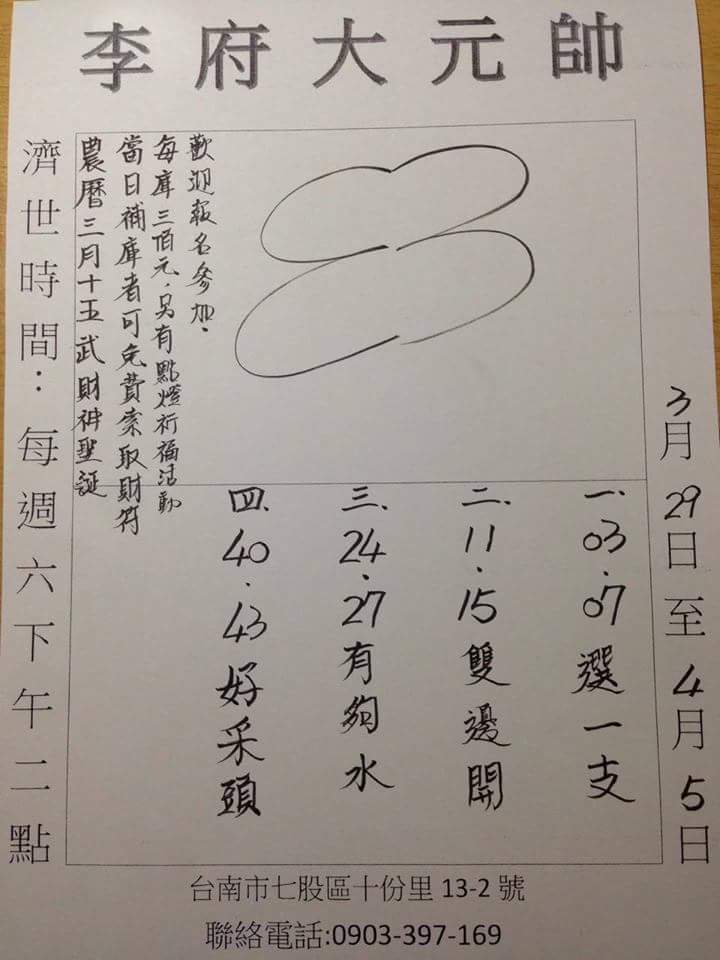 李府大元帥
3月29日至4月5日
一.03.07選一支
二.11.15雙邊開
三.24.27有夠水
四.40.43好采頭
農曆三月十五武財神聖誕
當日補庫者可免費索取財符
每庫三佰元.另有點燈祈福活動
歡迎報名參加.
濟世時間：每週六下午二點
台南市七股區十份里 13-2 號
聯絡電話:0903-397-169